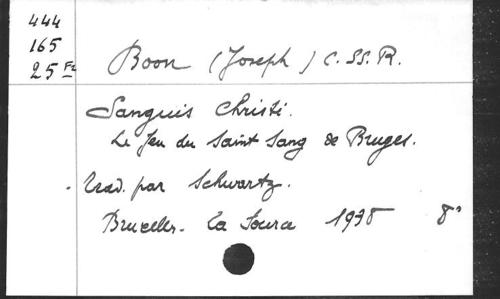 444
165
25 Fr
Boon (Joseph) C.SS.R.
Sanguis Christi.
Le Jeu du Saint Sang de Bruges.
Trad. par Schwartz.
Bruxelles. La Source 1938 8°